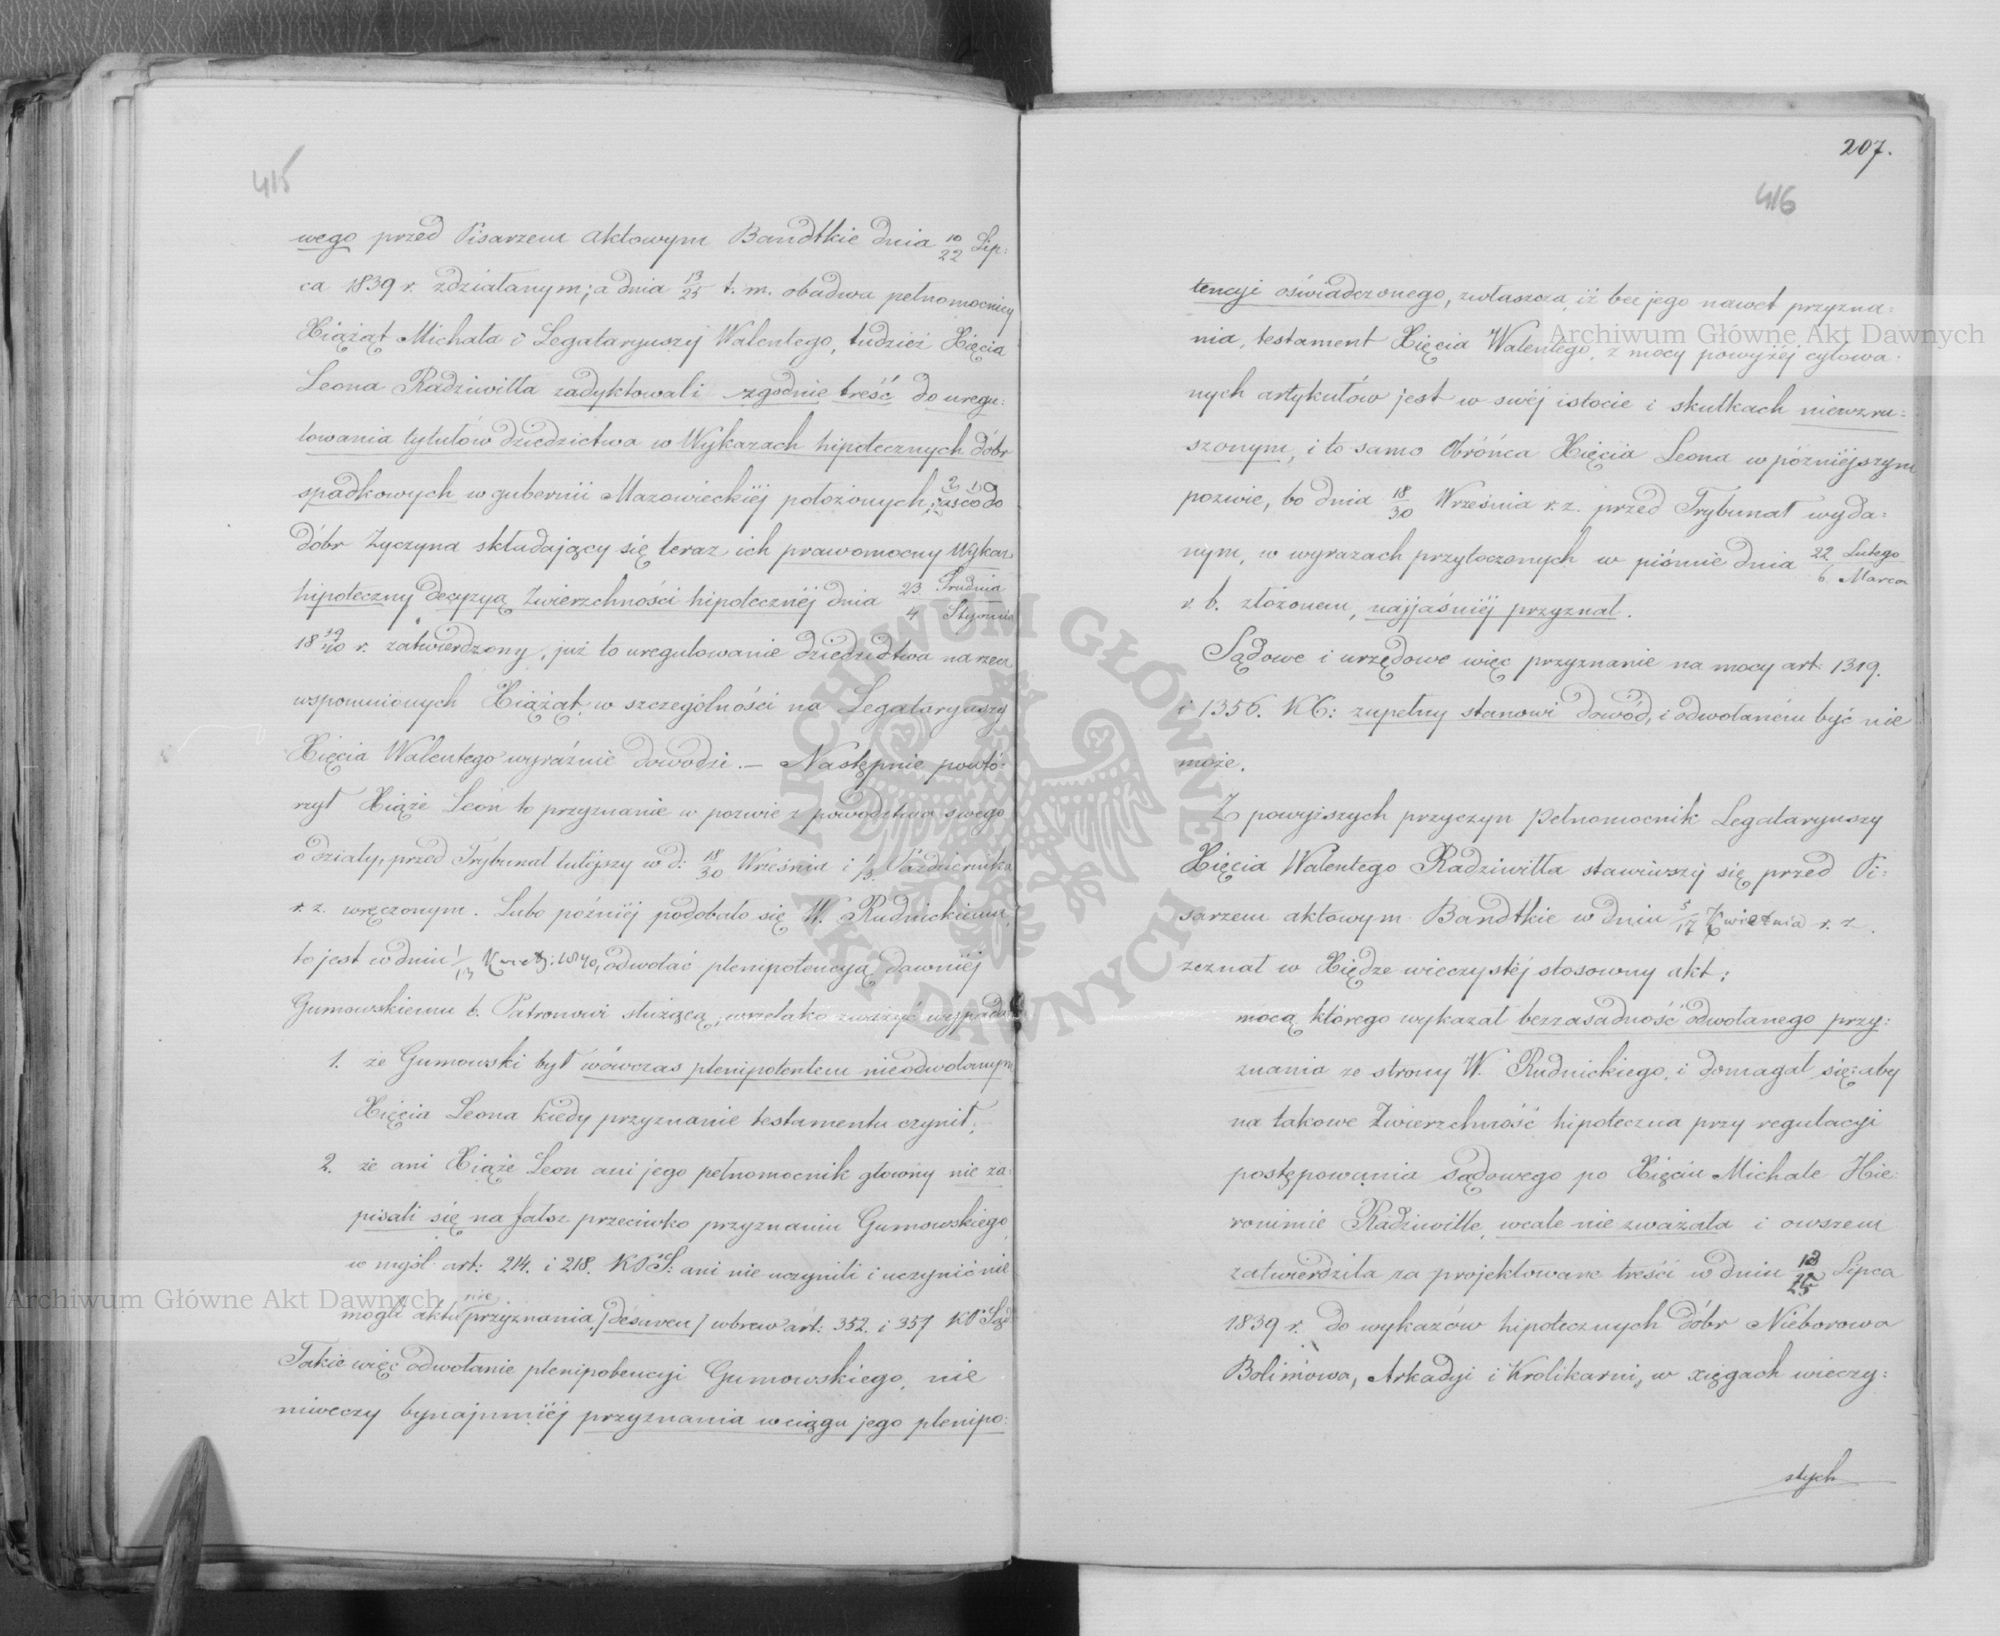 415
wego przed Pisarzem aktowym Bandtkie dnia 10/22 Lip:
ca 1839 r. zdziałanym; a dnia 13/25 t. m. obadwa pełnomocnicy
Xiążąt Michała i Legataryuszy Walentego, tudzież Xięcia
Leona Radziwiłła zadyktowali zgodnie treść do uregu:
lowania tytułów dziedzictwa w Wykazach hipotecznych dóbr
spadkowych w gubernii Mazowieckiéj położonych;
dóbr Zyczyna składający się teraz ich prawomocny Wykaz
hipoteczny decyzyą Zwierzchności hipotecznéj dnia 23 Grudnia / 4 Stycznia
18 39/40 r. zatwierdzony, już to uregulowanie dziedzictwa na rzecz
wspomnionych Xiążąt, w szczególności na Legataryuszy
Xięcia Walentego wyraźnie dowodzi. — Następnie powtó:
rzył Xiąże Leon to przyznanie w pozwie z powodztwa swego
o działy, przed Trybunał tutéjszy w d: 18/30 Września i 1/13 Października
r. z. wręczonym. Lubo późniéj podobało się W. Rudnickiemu,
to jest w dniu 1/13 Kwiet: 1840, odwołać plenipotencyą dawniéj
Gumowskiemu b. Patronowi służącą; wszelako zważyć wypada:
1. że Gumowski był wówczas plenipotentem nieodwołanym
Xięcia Leona kiedy przyznanie testamentu czynił;
2. że ani Xiąże Leon ani jego pełnomocnik głowny nie za:
pisali się na fałsz przeciwko przyznaniu Gumowskiego
w myśl art: 214. i 218. KPS: ani nie uczynili i uczynić nie
mogli aktu nie przyznania /désaveu/ wbrew art: 352. i 357 KPSąd
Takie więc odwołanie plenipotencyi Gumowskiego, nie
niweczy bynajmniéj przyznania w ciągu jego plenipo:
207.
416
tencyi oświadczonego, zwłaszcza iż bez jego nawet przyzna:
nia, testament Xięcia Walentego, z mocy powyżéj cytowa:
nych artykułów jest w swéj istocie i skutkach niewzru:
szonym, i to samo Obrońca Xięcia Leona w późniejszym
pozwie, bo dnia 18/30 Września r. z. przed Trybunał wyda:
nym, w wyrazach przytoczonych w piśmie dnia 22 Lutego / 6 Marca
r. b. złożonem, najjaśniéj przyznał.
Sądowe i urzędowe więc przyznanie na mocy art: 1319.
i 1356. KC: zupełny stanowi dowód, i odwołaném być nie
może.
Z powyższych przyczyn Pełnomocnik Legataryuszy
Xięcia Walentego Radziwiłła stawiwszy się przed Pi:
sarzem aktowym Bandtkie w dniu 5/17 Kwietnia r. z.
zeznał w Xiędze wieczystéj stosowny akt;
mocą którego wykazał bezzasadność odwołanego przy:
znania ze strony W. Rudnickiego, i domagał się: aby
na takowe Zwierzchność hipoteczna przy regulacyi
postępowania sądowego po Xięciu Michale Hie:
ronimie Radziwille, wcale nie zważała i owszem
zatwierdziła za projektowane treści w dniu 13/25 Lipca
1839 r. do wykazów hipotecznych dóbr Nieborowa
Bolimowa, Arkadyi i Krolikarni, w xięgach wieczy:
stych
Archiwum Główne Akt Dawnych
Archiwum Główne Akt Dawnych
ARCHIWUM GŁÓWNE AKT DAWNYCH